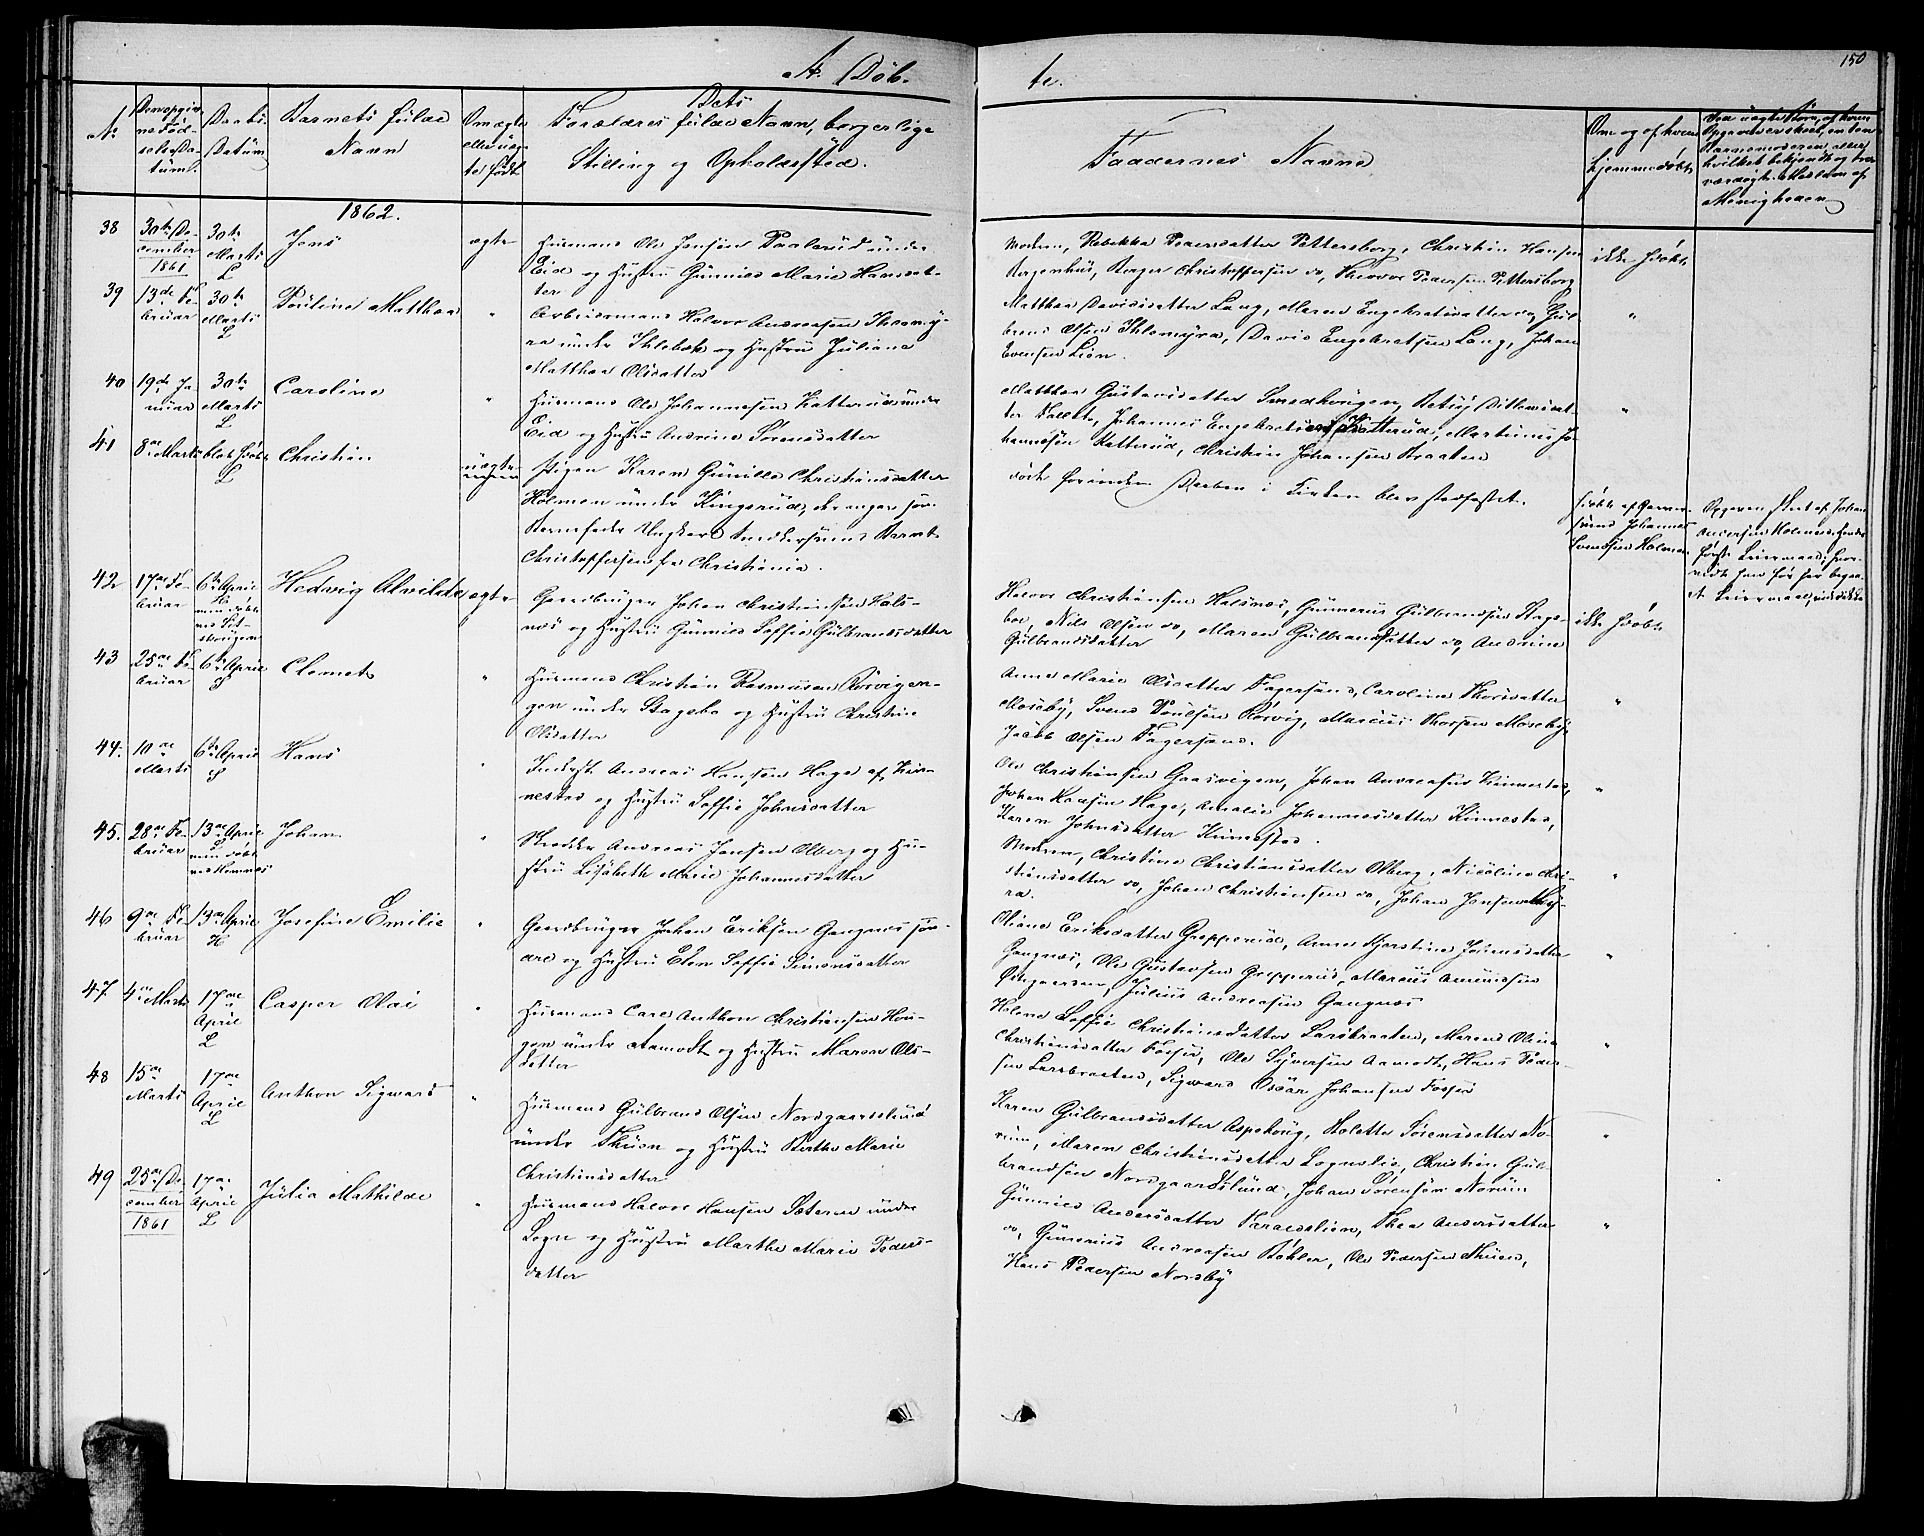 A. Döb-
te.
150
No
Barnets fulde
Navn
Daabs-
Datum
Om ægte
eller uæg-
te født
Dets
Forældres fulde Navn, borgerlige
Stilling og Opholdssted.
Faddernes Navne
Om og af hvem
hjemmedøbt
1862.
38
30te De-
cember
1861
30te
Marts
L
Jens
ægte
Husmand Ole Jensen under
Eid og Hustru Gunnild Marie Hansdat-
ter
Moderen, Rebekka Pedersdatter Pettersborg, Christian Hansen
Bergenhus, Berger Christoffersen do, Thorvald Pedersen Pettersborg
ikke hjdøbt
39
13de Fe-
bruar
30te
Marts
L
Pouline Matthea
"
Arbeidsmand Halvor Andreasen
under og Hustru Juliane
Matthea Olsdatter
Matthea Davidsdatter Lang, Maren Engebretsdatter do, Gul-
brand Olsen, David Engebretsen Lang, Johan
Evensen Lien.
"
40
19de Ja-
nuar
30te
Marts
L
Caroline
"
Husmand Ole Johannesen Katterud under
Eid og Hustru Andrine Sørensdatter
Matthea Gustavsdatter Smedhougen, Betsy Ditlevsdat-
ter, Johannes Engebretsen Katterud, Martinius Jo-
hannesen Katterud, Christian Johansen Braaten
"
41
8de Marts
blot hjdøbt
L
Christian
uægte
Pigen Karen Gunille Christiansdatter
Holmen under Kingsrud, der angav som
Barnefader Ungkarl Snedkersvend Bernt
Christoffersen fra Christiania.
døde forinden Daaben i Kirken blev stadfæstet.
hjdøbt af Gaard-
mand Johannes
Svendsen Holmen
Opgaven skeet af Johan
Andersen Holmen
42
17de Fe-
bruar
6te April
Hedvig Alvilde
ægte
Gaardbruger Johan Christiansen Hals-
næs og Hustru Gunnild Soffie Gulbrandsdatter
Halvor Christiansen Halsnæs, Gunnerius Gulbrandsen Stage-
boe, Nils Olsen do, Maren Gulbrandsdatter do, Andrine
Gulbrandsdatter
ikke hjdøbt
43
25de Fe-
bruar
6te April
S
Clemet
"
Husmand Christian Rasmussen Rørvigen-
gen under Stagebo og Hustru Christine
Olsdatter
Anne Marie Olsdatter Fagersand, Caroline Thorsdatter
Moseby, Svend Poulsen Rørvig, Marius Thorsen Moseby,
Jacob Olsen Fagersand.
"
44.
10de
Marts
6te April
S
Hans
"
Inderst Andreas Hansen Hage af Kin-
nestad og Hustru Soffie Johnsdatter
Ole Christiansen Gaasvigen, Johan Andreasen Kinnestad,
Johan Hansen Hage, Amalie Johannesdatter Kinnestad,
Karen Johnsdatter Kinnestad.
"
45.
28de Fe-
bruar
13de April
Johan
"
Skrædder Andreas Jensen Olberg og Hu-
stru Lisabeth Marie Johannesdatter
Moderen, Christine Christiansdatter Olberg, Nicoline Chri-
stiansdatter do, Johan Christiansen do, Johan Jensen My-
ra.
"
46
9de Fe-
bruar
13de April
H
Josefine Emilie
"
Gaardbruger Johan Eriksen Gangnæs søn-
dre og Hustru Elen Soffie Simensdatter
Oliane Eriksdatter Grepperud, Anne Kjerstine Jonsdatter
Gangnæs, Ole Gustavsen Grepperud, Marius Amundsen
, Julius Andreasen Gangnæs
"
47
4de Marts
17de
April
L
Casper Olai
"
Husmand Carl Anthon Christiansen Hou-
gen under Aamodt og Hustru Maren Ols-
datter
Helene Soffie Christiansdatter Larsbraaten, Maren Oline
Christiansdatter Fosser, Ole Syversen Aamodt, Hans Peder-
sen Larsbraaten, Sigvard Oscar Johansen Fosser
"
48
15de
Marts
17de
April
L
Anthon Sigvard
"
Husmand Gulbrand Olsen Nordgaardslund
under Thuen og Hustru Berthe Marie
Christiansdatter
Karen Gulbrandsdatter Aspehoug, Helette Sørensdatter No-
rum, Maren Christiansdatter Lognelie, Christian Gul-
brandsen Nordgaardslund, Johan Sørensen Norum
"
49
25de De-
cember
1861
17de
April
L
Julia Mathilde
"
Husmand Halvor Hansen Sæteren under
Logn og Hustru Marthe Marie Peders-
datter
Gunnild Andersdatter, Thea Andersdatter
do, Gunerius Andreasen Bøhler, Ole Pedersen Thuen,
Hans Pedersen Nordby
"